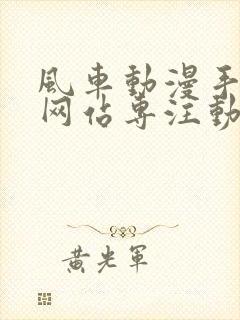 風車動漫手
网站專注動
黃光軍